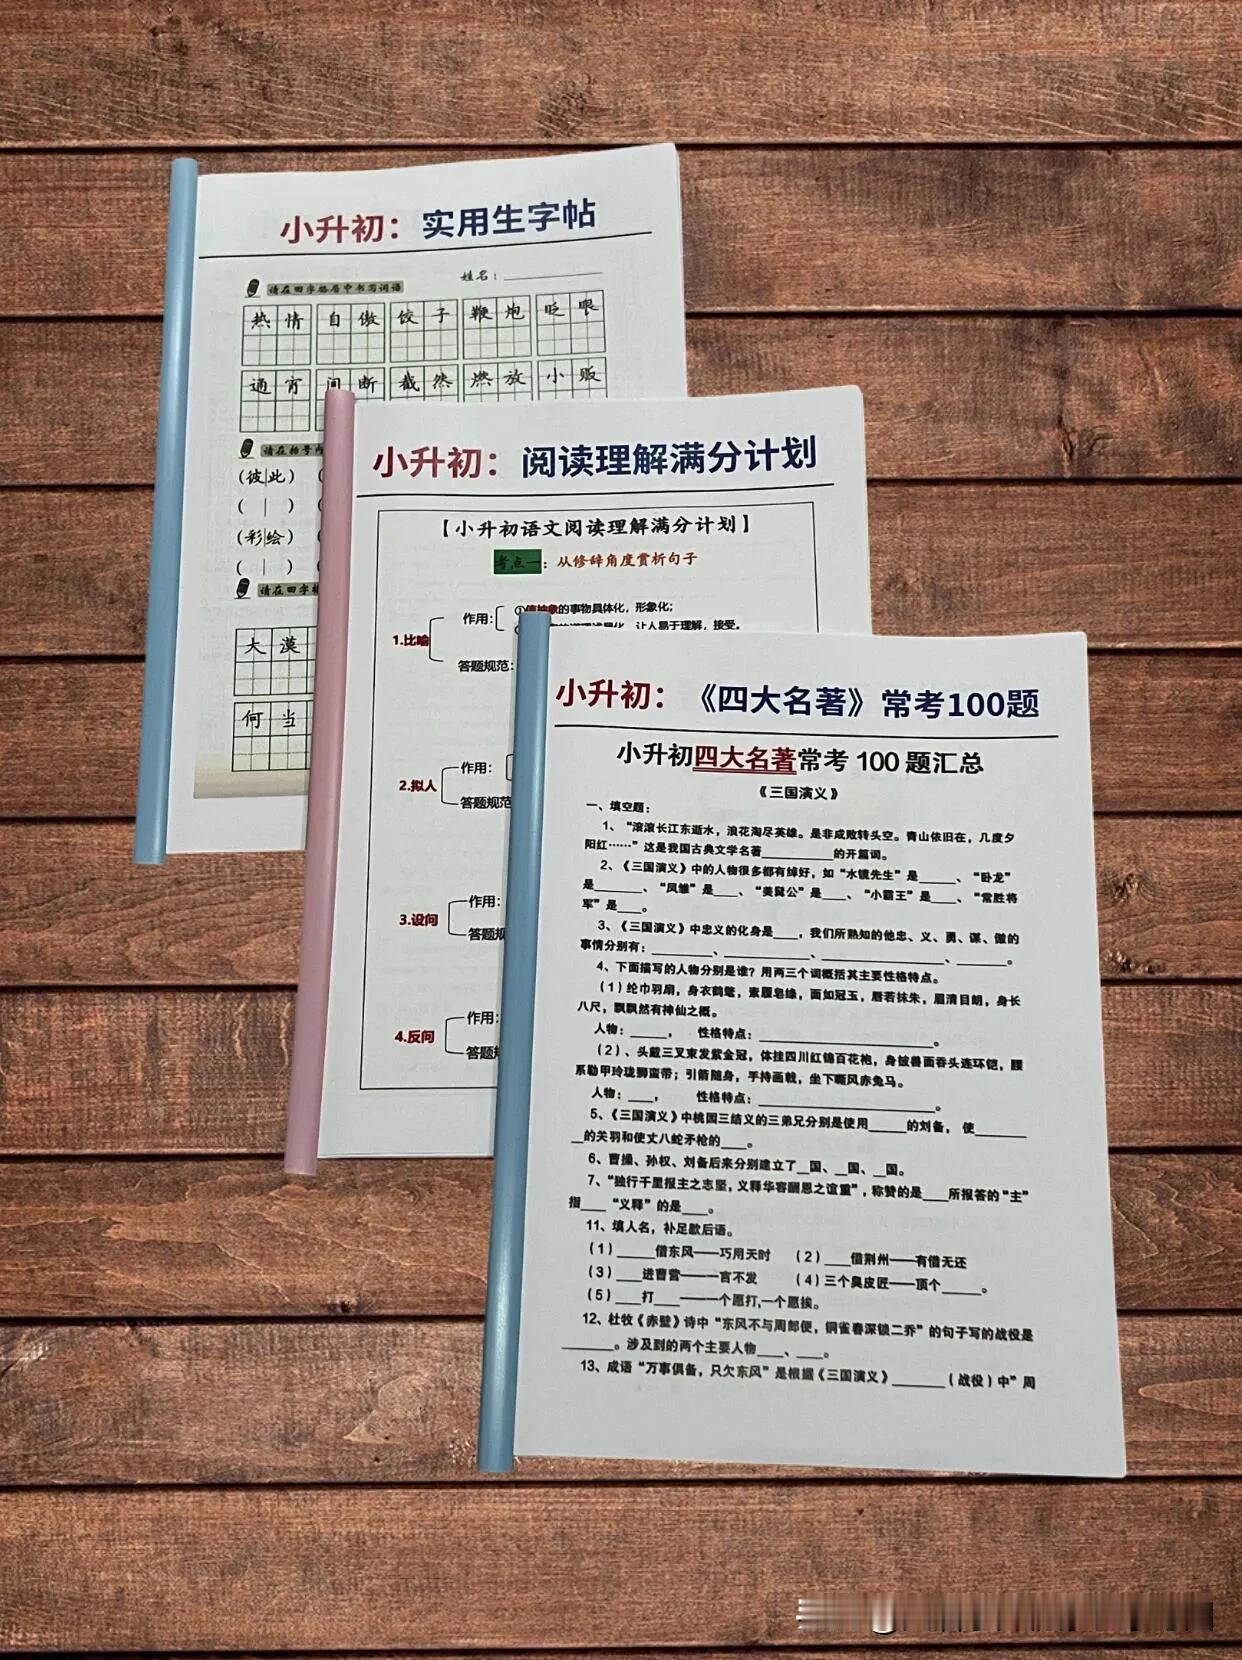 小升初：实用生字帖
姓名：
请在田字格居中书写词语
热情 自傲 饺子 鞭炮 眨眼
通宵 间断 截然 燃放 小贩
请在括号内
(彼|此)
( | )
(彩|绘)
( | )
请在田字格
大漠
何当
小升初：阅读理解满分计划
【小升初语文阅读理解满分计划】
考点一：从修辞角度赏析句子
1.比喻
作用：
①使抽象的事物具体化，形象化；
让人易于理解，接受。
答题规范：
2.拟人
作用：
答题规范
3.设问
作用：
答题规
4.反问
作用：
答题
小升初：《四大名著》常考100题
小升初四大名著常考 100 题汇总
《三国演义》
一、填空题：
1、“滚滚长江东逝水，浪花淘尽英雄。是非成败转头空。青山依旧在，几度夕
阳红……”这是我国古典文学名著__________的开篇词。
2、《三国演义》中的人物很多都有绰好，如“水镜先生”是_____、“卧龙”
是_______、“凤雏”是___、“美髯公”是___、“小霸王”是___、“常胜将
军”是___。
3、《三国演义》中忠义的化身是___，我们所熟知的他忠、义、勇、谋、傲的
事情分别有：________、_________、____________、______。
4、下面描写的人物分别是谁？用两三个词概括其主要性格特点。
（1）纶巾羽扇，身衣鹤氅，素履皂绦，面如冠玉，唇若抹朱，眉清目朗，身长
八尺，飘飘然有神仙之概。
人物：_____， 性格特点：______________________。
（2）、头戴三叉束发紫金冠，体挂四川红锦百花袍，身披兽面吞头连环铠，腰
系勒甲玲珑狮蛮带；引箭随身，手持画戟，坐下嘶风赤兔马。
人物：___， 性格特点：______________________。
5、《三国演义》中桃园三结义的三弟兄分别是使用_____的刘备， 使_______
_的关羽和使丈八蛇矛枪的___。
6、曹操、孙权、刘备后来分别建立了__国、__国、__国。
7、“独行千里报主之志坚，义释华容酬恩之谊重”，称赞的是___所报答的“主”
指___ “义释”的是___。
11、填人名，补足歇后语。
（1）_____借东风——巧用天时 （2）___借荆州——有借无还
（3）___进曹营——一言不发 （4）三个臭皮匠——顶个_____。
（5）___打___——一个愿打,一个愿挨。
12、杜牧《赤壁》诗中“东风不与周郎便，铜雀春深锁二乔”的句子写的战役是
_______。涉及到的两个主要人物____、____。
13、成语“万事俱备，只欠东风”是根据《三国演义》_______（战役）中”周